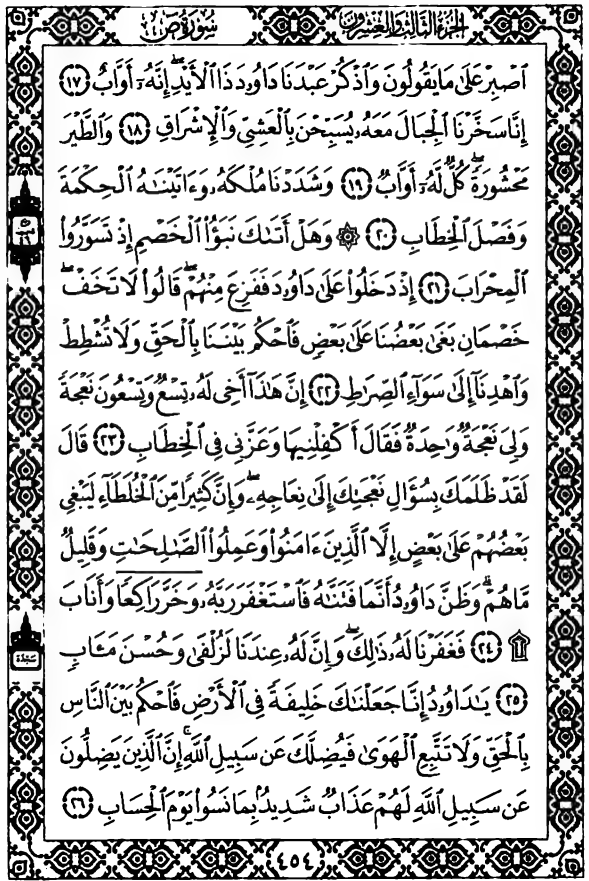 الجزء الثالث والعشرون
سورة ص
ٱصۡبِرۡ عَلَىٰ مَا يَقُولُونَ وَٱذۡكُرۡ عَبۡدَنَا دَاوُۥدَ ذَا ٱلۡأَيۡدِۖ إِنَّهُۥٓ أَوَّابٌ ١٧
إِنَّا سَخَّرۡنَا ٱلۡجِبَالَ مَعَهُۥ يُسَبِّحۡنَ بِٱلۡعَشِيِّ وَٱلۡإِشۡرَاقِ ١٨ وَٱلطَّيۡرَ
مَحۡشُورَةٗۖ كُلّٞ لَّهُۥٓ أَوَّابٞ ١٩ وَشَدَدۡنَا مُلۡكَهُۥ وَءَاتَيۡنَٰهُ ٱلۡحِكۡمَةَ
وَفَصۡلَ ٱلۡخِطَابِ ٢٠ ۞ وَهَلۡ أَتَىٰكَ نَبَؤُاْ ٱلۡخَصۡمِ إِذۡ تَسَوَّرُواْ
ٱلۡمِحۡرَابَ ٢١ إِذۡ دَخَلُواْ عَلَىٰ دَاوُۥدَ فَفَزِعَ مِنۡهُمۡۖ قَالُواْ لَا تَخَفۡۖ
خَصۡمَانِ بَغَىٰ بَعۡضُنَا عَلَىٰ بَعۡضٖ فَٱحۡكُم بَيۡنَنَا بِٱلۡحَقِّ وَلَا تُشۡطِطۡ
وَٱهۡدِنَآ إِلَىٰ سَوَآءِ ٱلصِّرَٰطِ ٢٢ إِنَّ هَٰذَآ أَخِي لَهُۥ تِسۡعٞ وَتِسۡعُونَ نَعۡجَةٗ
وَلِيَ نَعۡجَةٞ وَٰحِدَةٞ فَقَالَ أَكۡفِلۡنِيهَا وَعَزَّنِي فِي ٱلۡخِطَابِ ٢٣ قَالَ
لَقَدۡ ظَلَمَكَ بِسُؤَالِ نَعۡجَتِكَ إِلَىٰ نِعَاجِهِۦۖ وَإِنَّ كَثِيرٗا مِّنَ ٱلۡخُلَطَآءِ لَيَبۡغِي
بَعۡضُهُمۡ عَلَىٰ بَعۡضٍ إِلَّا ٱلَّذِينَ ءَامَنُواْ وَعَمِلُواْ ٱلصَّٰلِحَٰتِ وَقَلِيلٞ
مَّا هُمۡۗ وَظَنَّ دَاوُۥدُ أَنَّمَا فَتَنَّٰهُ فَٱسۡتَغۡفَرَ رَبَّهُۥ وَخَرَّۤ رَاكِعٗاۤ وَأَنَابَ
۩ ٢٤ فَغَفَرۡنَا لَهُۥ ذَٰلِكَۖ وَإِنَّ لَهُۥ عِندَنَا لَزُلۡفَىٰ وَحُسۡنَ مَـَٔابٖ
٢٥ يَٰدَاوُۥدُ إِنَّا جَعَلۡنَٰكَ خَلِيفَةٗ فِي ٱلۡأَرۡضِ فَٱحۡكُم بَيۡنَ ٱلنَّاسِ
بِٱلۡحَقِّ وَلَا تَتَّبِعِ ٱلۡهَوَىٰ فَيُضِلَّكَ عَن سَبِيلِ ٱللَّهِۚ إِنَّ ٱلَّذِينَ يَضِلُّونَ
عَن سَبِيلِ ٱللَّهِ لَهُمۡ عَذَابٞ شَدِيدُۢ بِمَا نَسُواْ يَوۡمَ ٱلۡحِسَابِ ٢٦
سجدة
٤٥٤